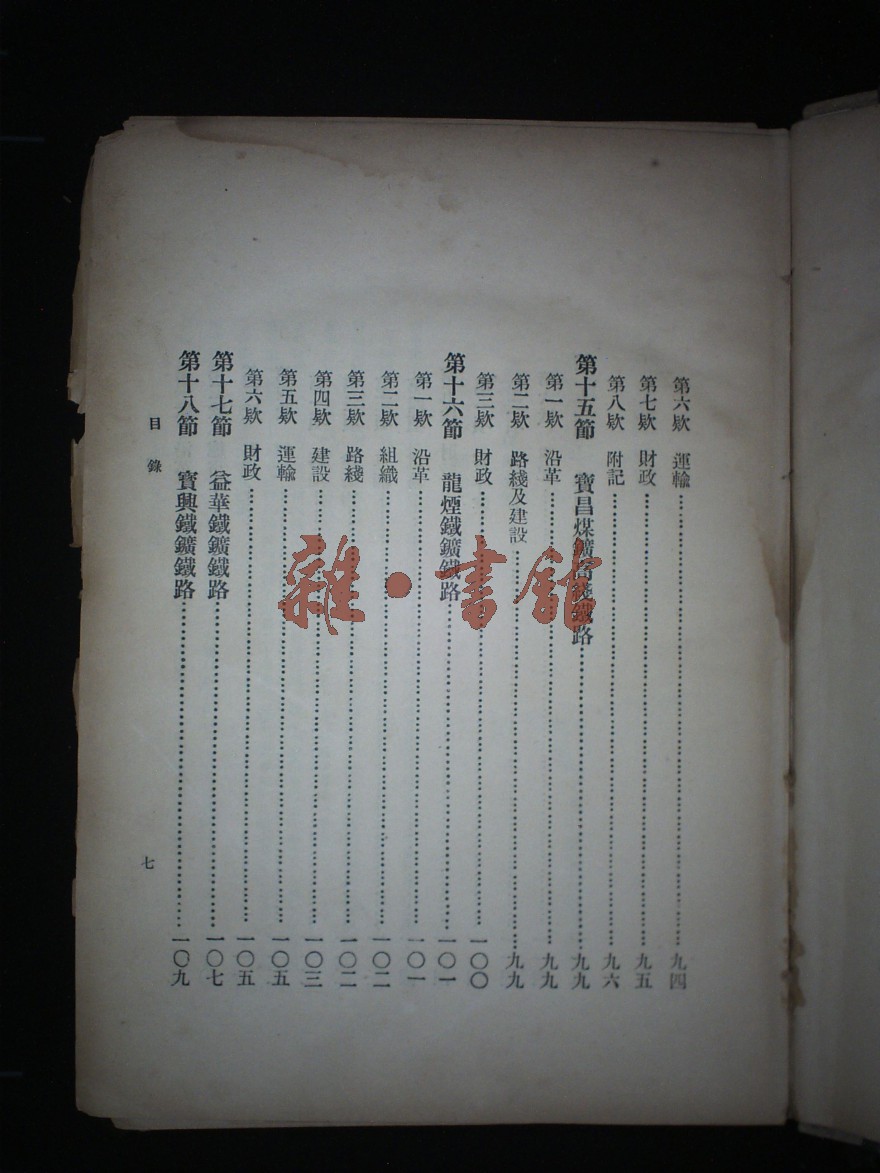 第六欵 運輸……九四
第七欵 財政……九五
第八欵 附記……九六
第十五節 寶昌煤鑛高綫鐵路……九九
第一欵 沿革……九九
第二欵 路綫及建設……九九
第三欵 財政……一〇〇
第十六節 龍煙鐵鑛鐵路……一〇一
第一欵 沿革……一〇一
第二欵 組織……一〇二
第三欵 路綫……一〇二
第四欵 建設……一〇三
第五欵 運輸……一〇五
第六欵 財政……一〇五
第十七節 益華鐵鑛鐵路……一〇七
第十八節 寶興鐵鑛鐵路……一〇九
目錄
七
雜·書館